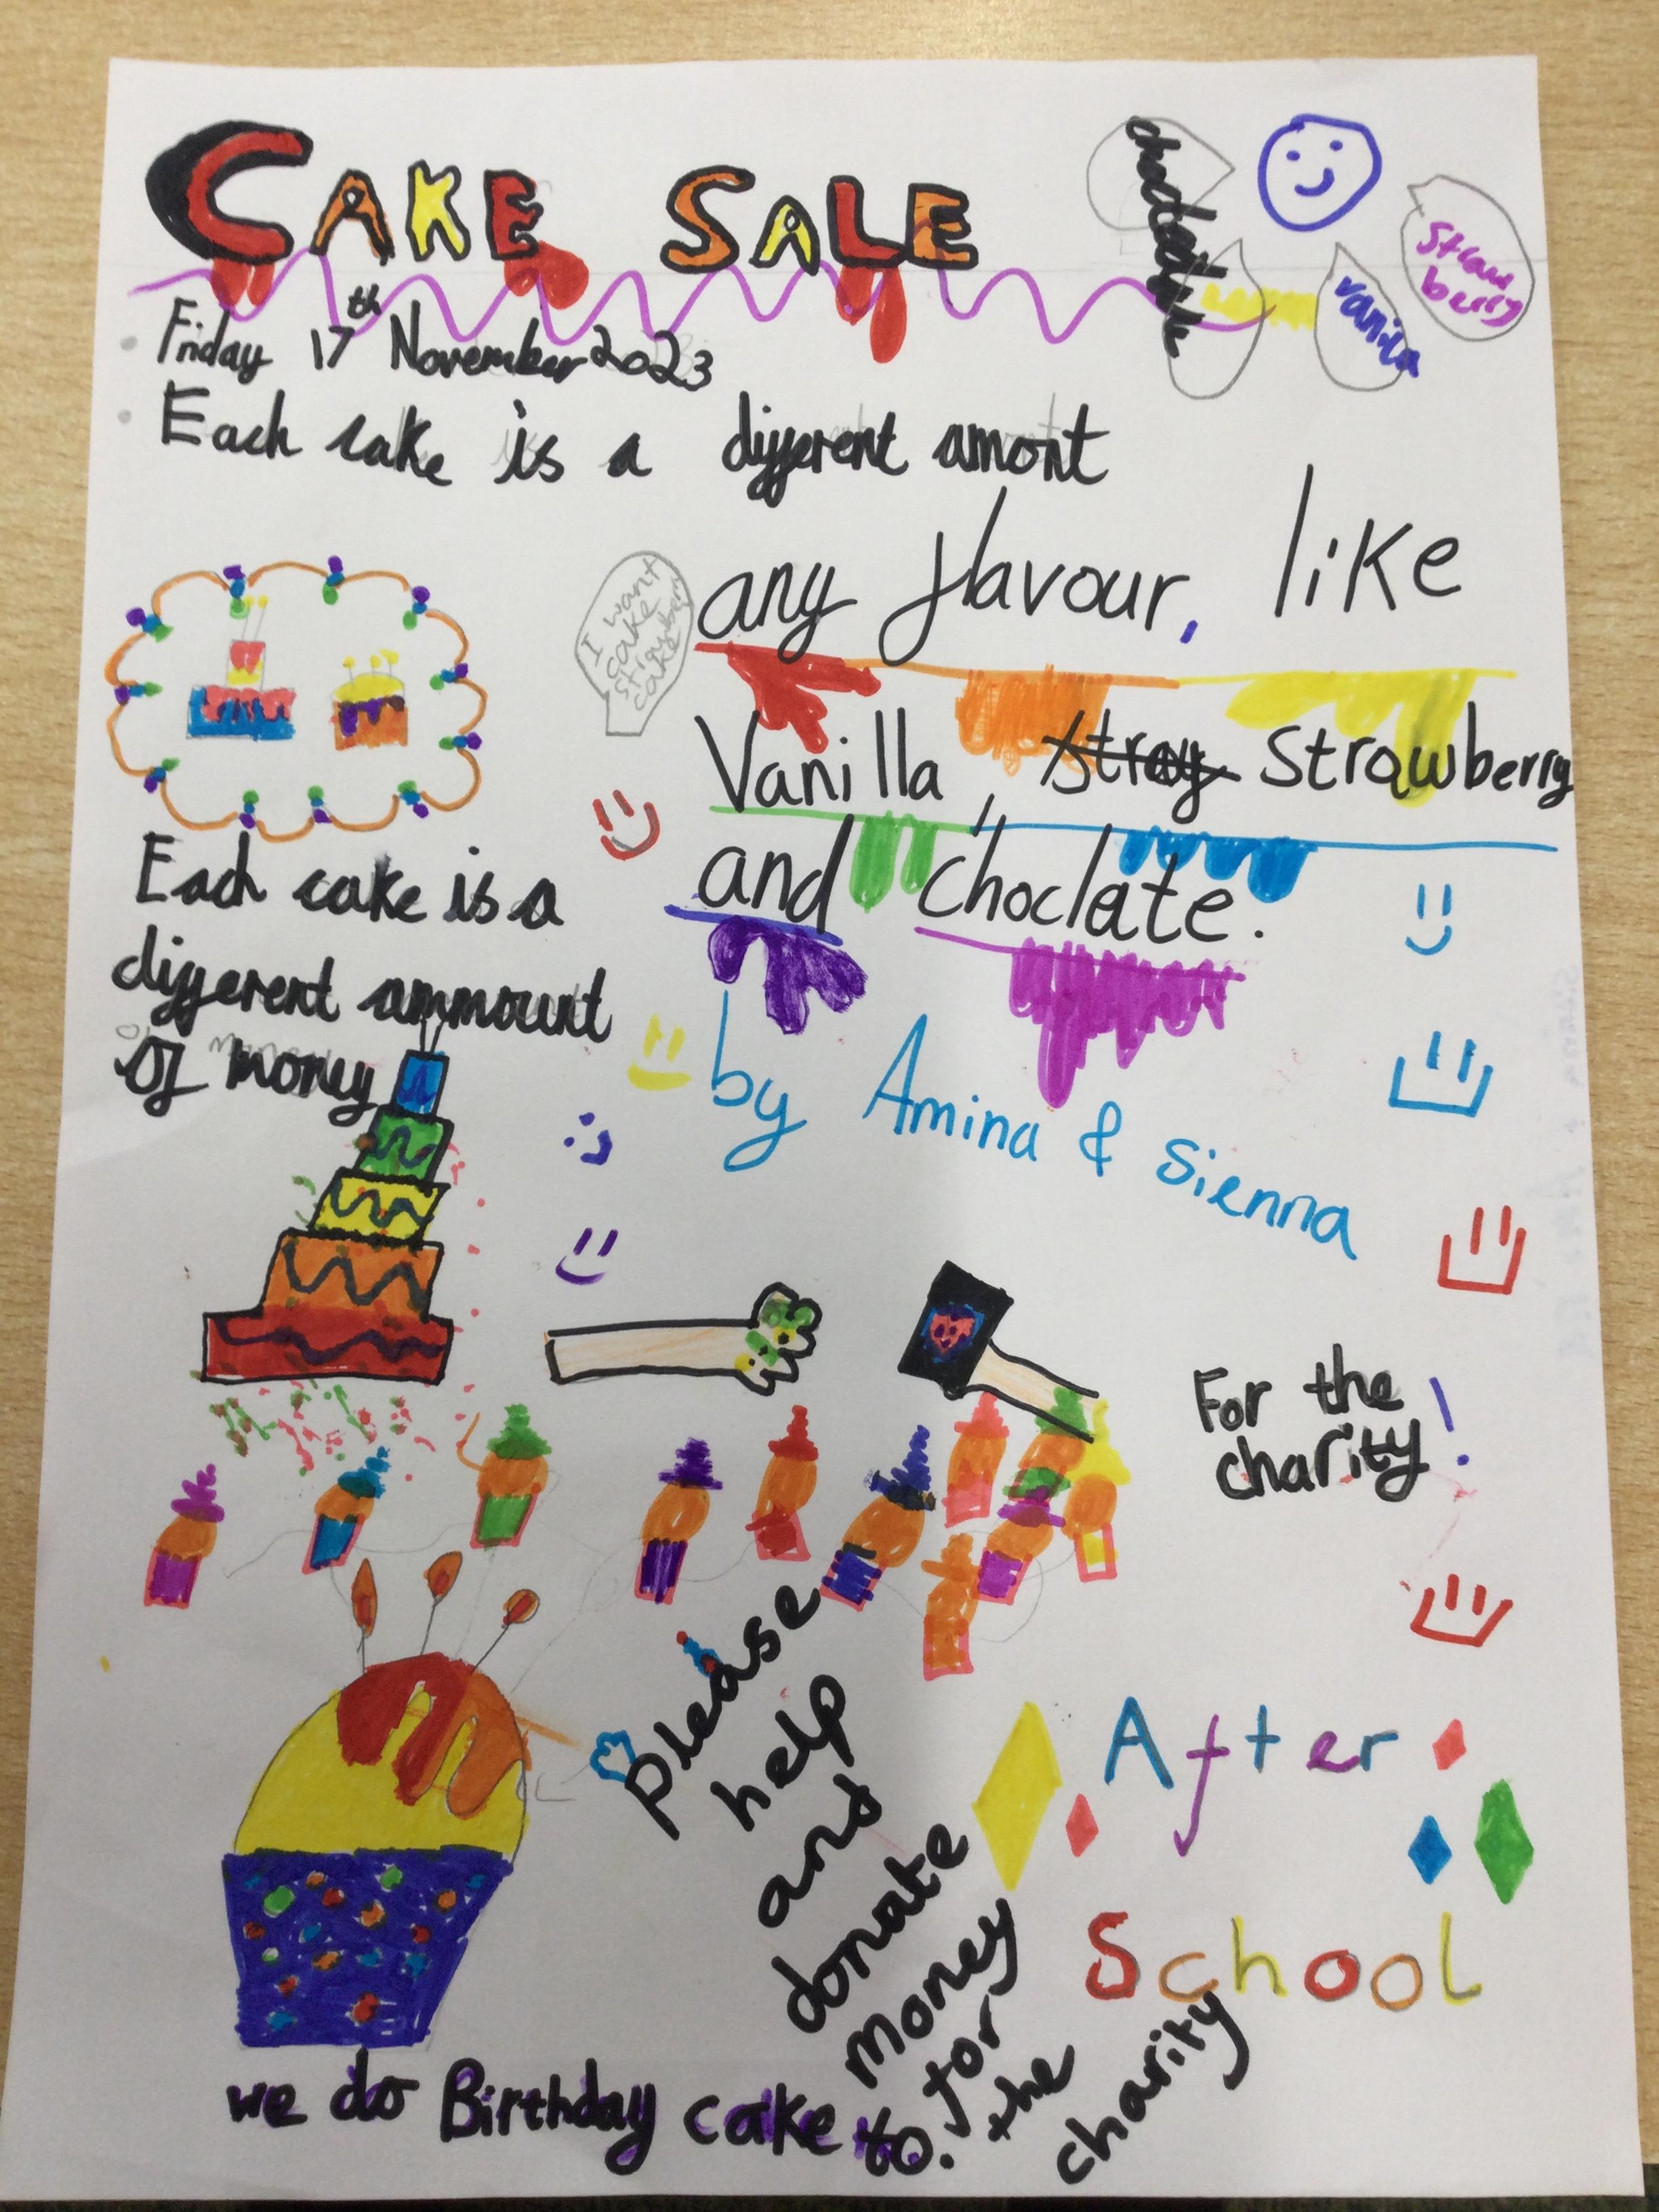 CAKE SALE
chocolate
Straw
berry
vanila
Friday 17th November 2023
Each cake is a different amont
any flavour, like
I want
cake
strawberry
cake
Vanilla, stray Strawberry
and choclate.
Each cake is a
different ammount
of money
by Amina & Sienna
For the
charity!
Please
help
and
donate
money
for
the
charity
After
School
we do Birthday cake to.